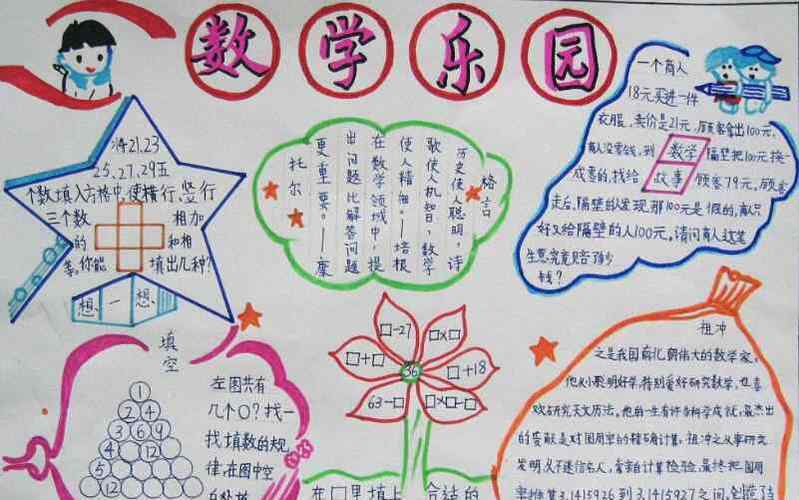 数学乐园
将21.23
25.27.29五
个数填入方格中,使横行、竖行
三个数 相加
的 和相
等。你能 填出几种?
想一想
格言
历史使人聪明,诗
歌使人机智,数学
使人精细。——培根
在数学领域中,提
出问题比解答问题
更重要。——康
托尔
一个商人
18元买进一件
衣服,卖价是21元,顾客拿出100元,
商人没零钱,到 隔壁把100元换
成零的,找给 顾客79元,顾客
数学
故事
走后,隔壁的人发现,那100元是假的,商人只
好又给隔壁的人100元。请问商人这笔
生意究竟赔了多少
钱?
填空
左图共有
几个○?找一
找填数的规
律,在图中空
1
2 4
3 6 9
4 12
5
12
□-27
□×□
□+□
36
□+18
63-□
□×□-□
在□里填上 合适的
祖冲
之是我国南北朝伟大的数学家,
他从小聪明好学,特别爱好研究数学,也喜
欢研究天文历法。他的一生有许多科学成就,最杰出
的贡献是对圆周率的精确计算,祖冲之从事研究
发明,从不迷信名人,亲自计算检验,最终把圆周
率推算3.1415926到3.1415927之间,创造了